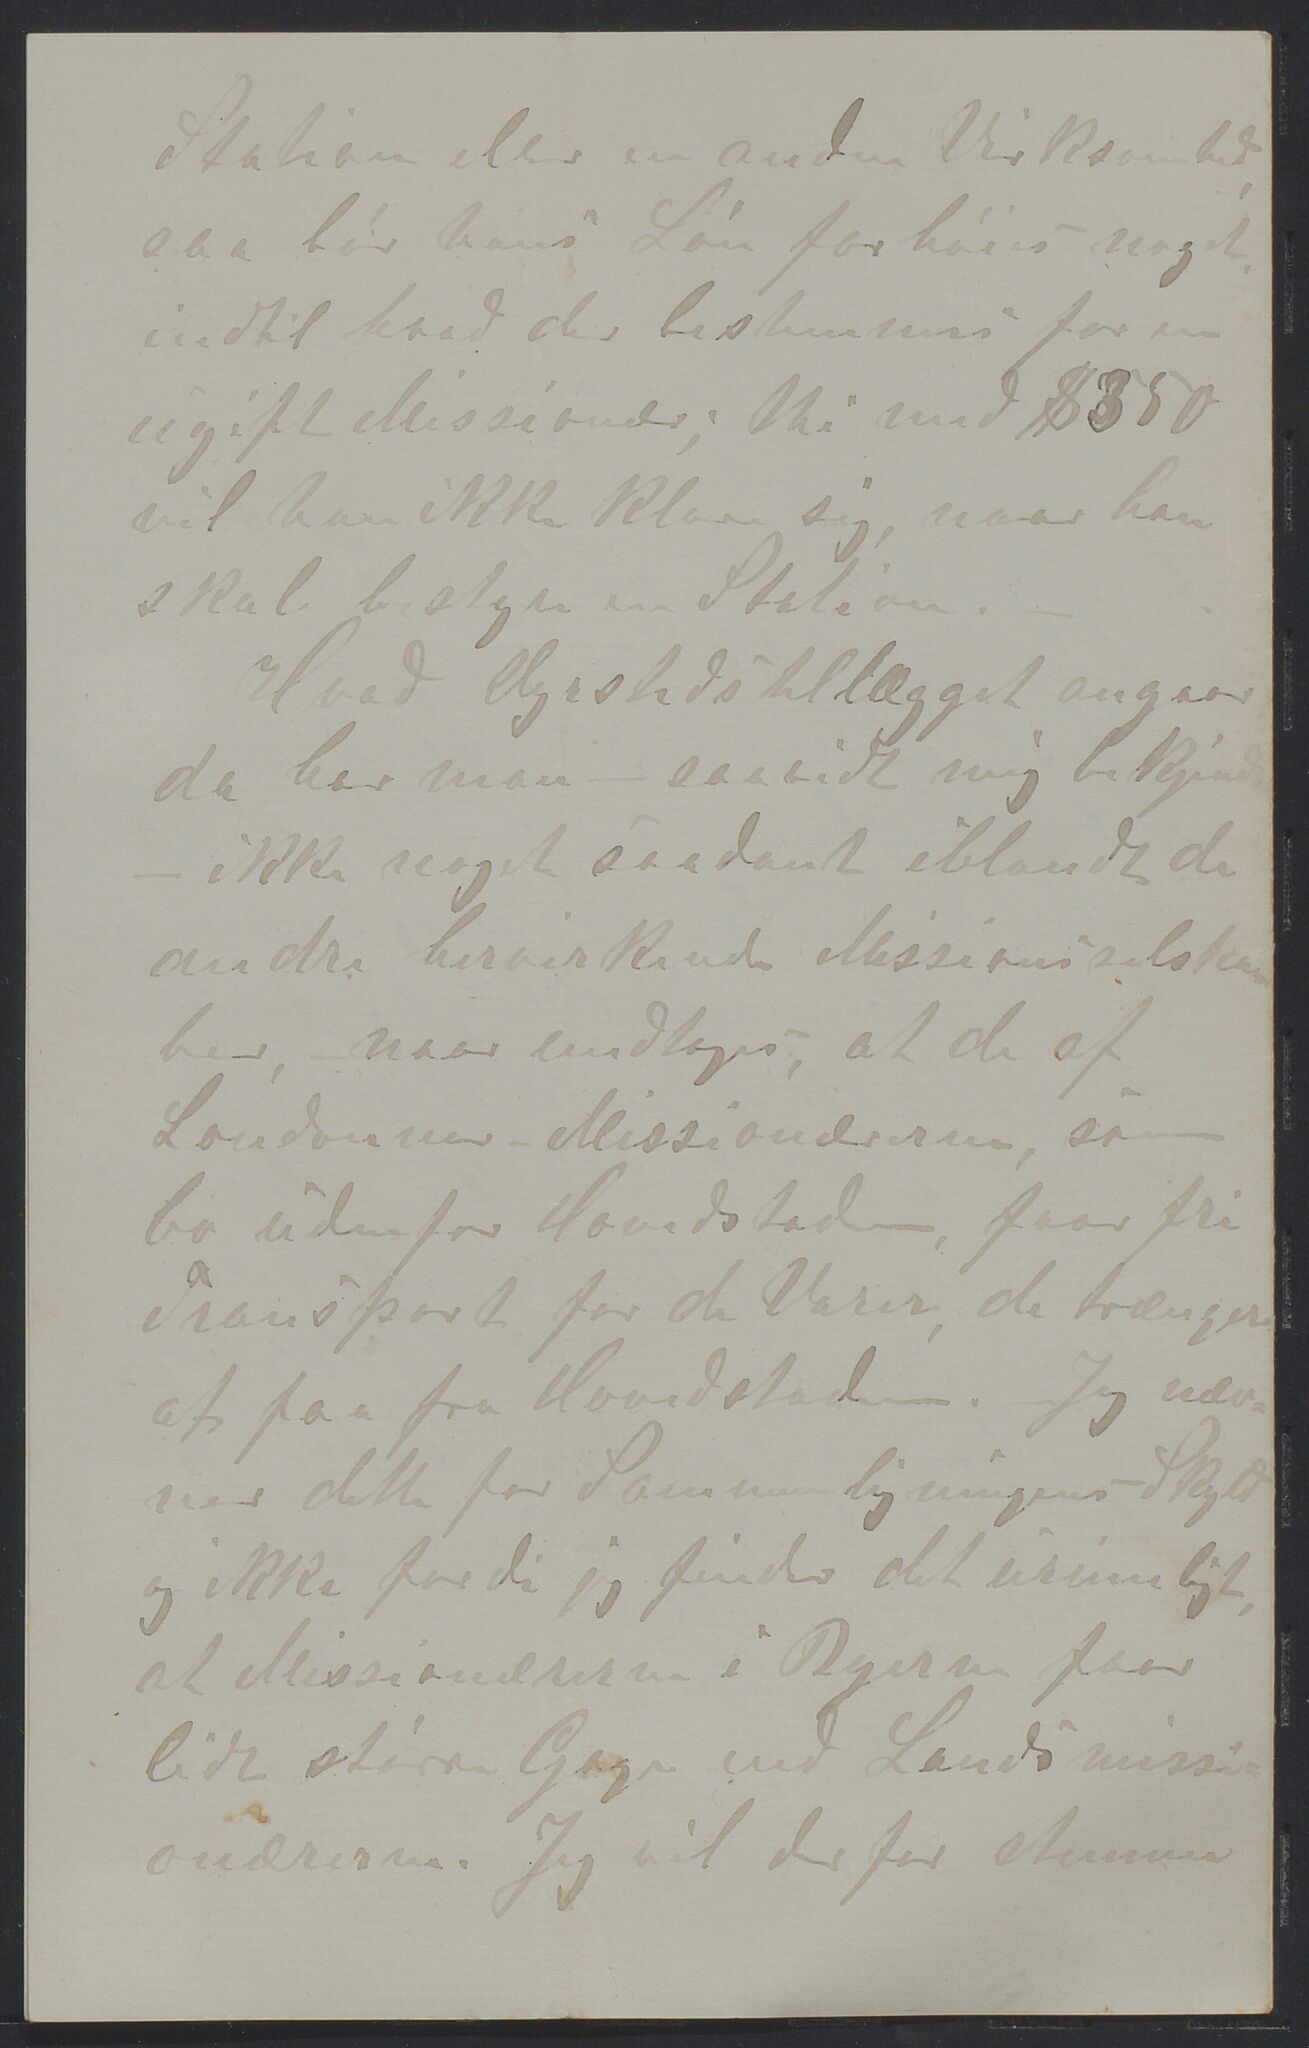 Station eller en anden Virksomhed,
saa bör hans Lön forhöies noget,
indtil hvad der bestemmes for en
ugift Missionær; thi med $350
vil han ikke klare sig, naar han
skal bestyre en Station. —
Hvad Dyrstedstillægget angaar
da har man — saavidt mig bekjendt
— ikke noget saadant iblandt de
andre hervirkende Missionsselska-
ber, — naar undtages, at de af
Londonner-Missionærerne, som
bo udenfor Hovedstaden, faar fri
Transport for de Varer, de trænger
at faa fra Hovedstaden. — Jeg næv-
ner dette for Sammenligningens Skyld
og ikke fordi jeg finder det urimeligt,
at Missionærerne i Byerne faar
lidt större Gage end Landsmissi-
onærerne. Jeg vil derfor stemme